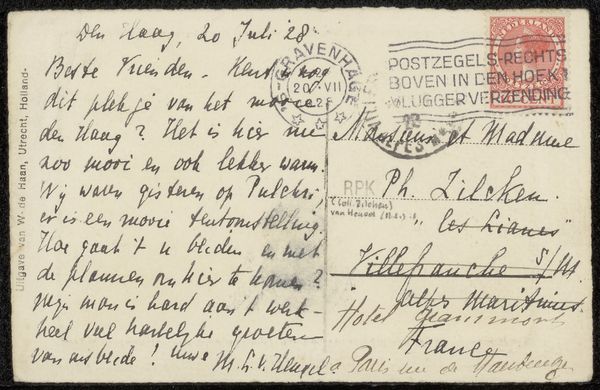 Den Haag, 20 Juli 28
Beste Vrienden. Kent u nog
dit plekje van het mooie
den Haag? Het is hier nu
zoo mooi en ook lekker warm.
Wij waren gisteren op Pulchri,
er is een mooie tentoonstelling.
Hoe gaat 't u beiden en met
de plannen om hier te komen?
Mijn man is hard aan 't werk
heel veel hartelijke groeten
van ons beide! Uwe
Uitgave van W. de Haan, Utrecht, Holland
'S-GRAVENHAGE
20 VII
NEDERLAND
POSTZEGELS RECHTS
BOVEN IN DEN HOEK
VLUGGER VERZENDING
Monsieur et Madame
RPK
Ph. Zilcken
(Coll. Zilcken)
"Les Lianes"
Villefranche s/M.
Alpes Maritimes
Hotel
France
Paris rue de